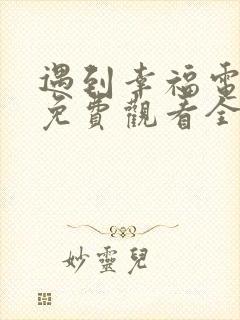 遇到幸福電
免費觀看全
妙靈兒